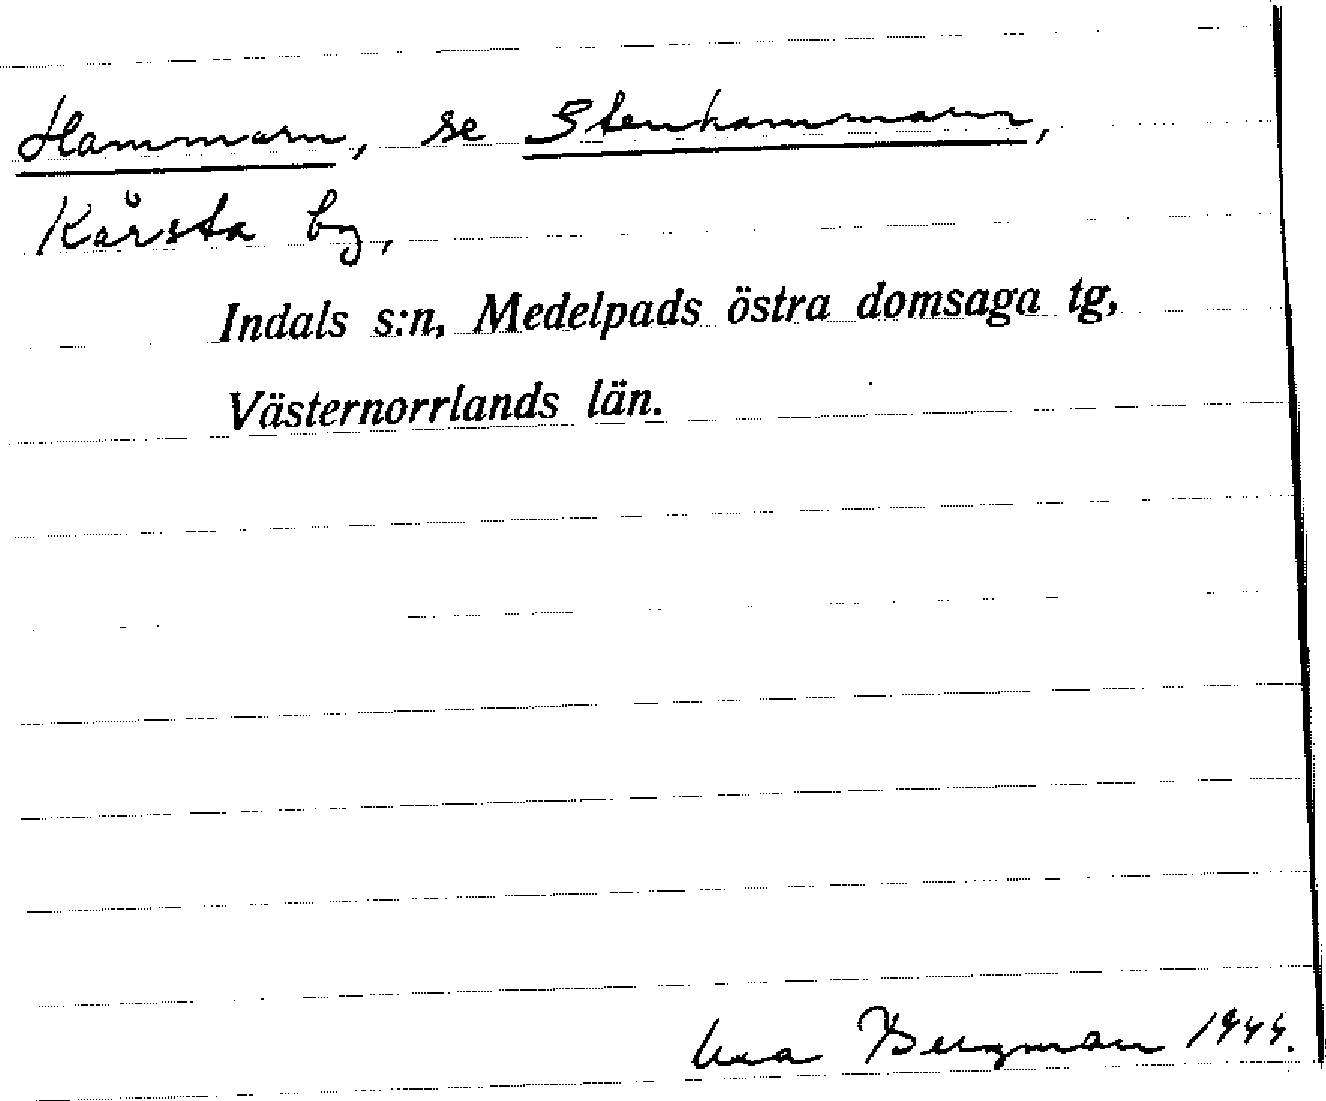 Hammarn, se Stenhammarn,
Kårsta by,
Indals s:n, Medelpads östra domsaga tg,
Västernorrlands län.
Bergman 1944.